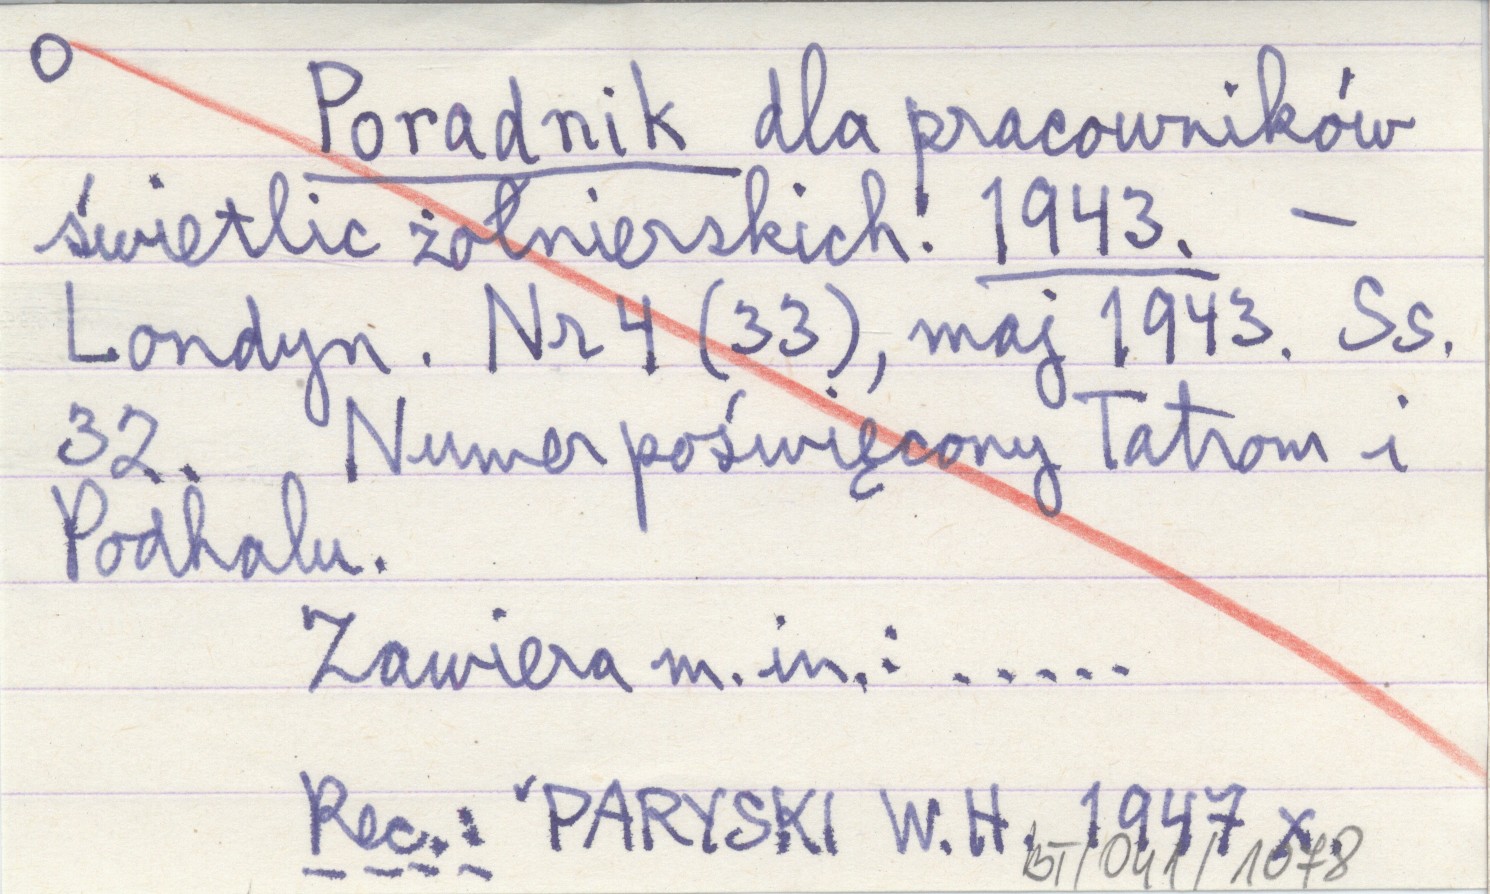 O
Poradnik dla pracowników
świetlic żołnierskich. 1943. —
Londyn. Nr 4 (33), maj 1943. Ss.
32. Numer poświęcony Tatrom i
Podhalu.
Zawiera m. in.: .....
Rec.: PARYSKI W.H. 1947 x.
BT/041/1078